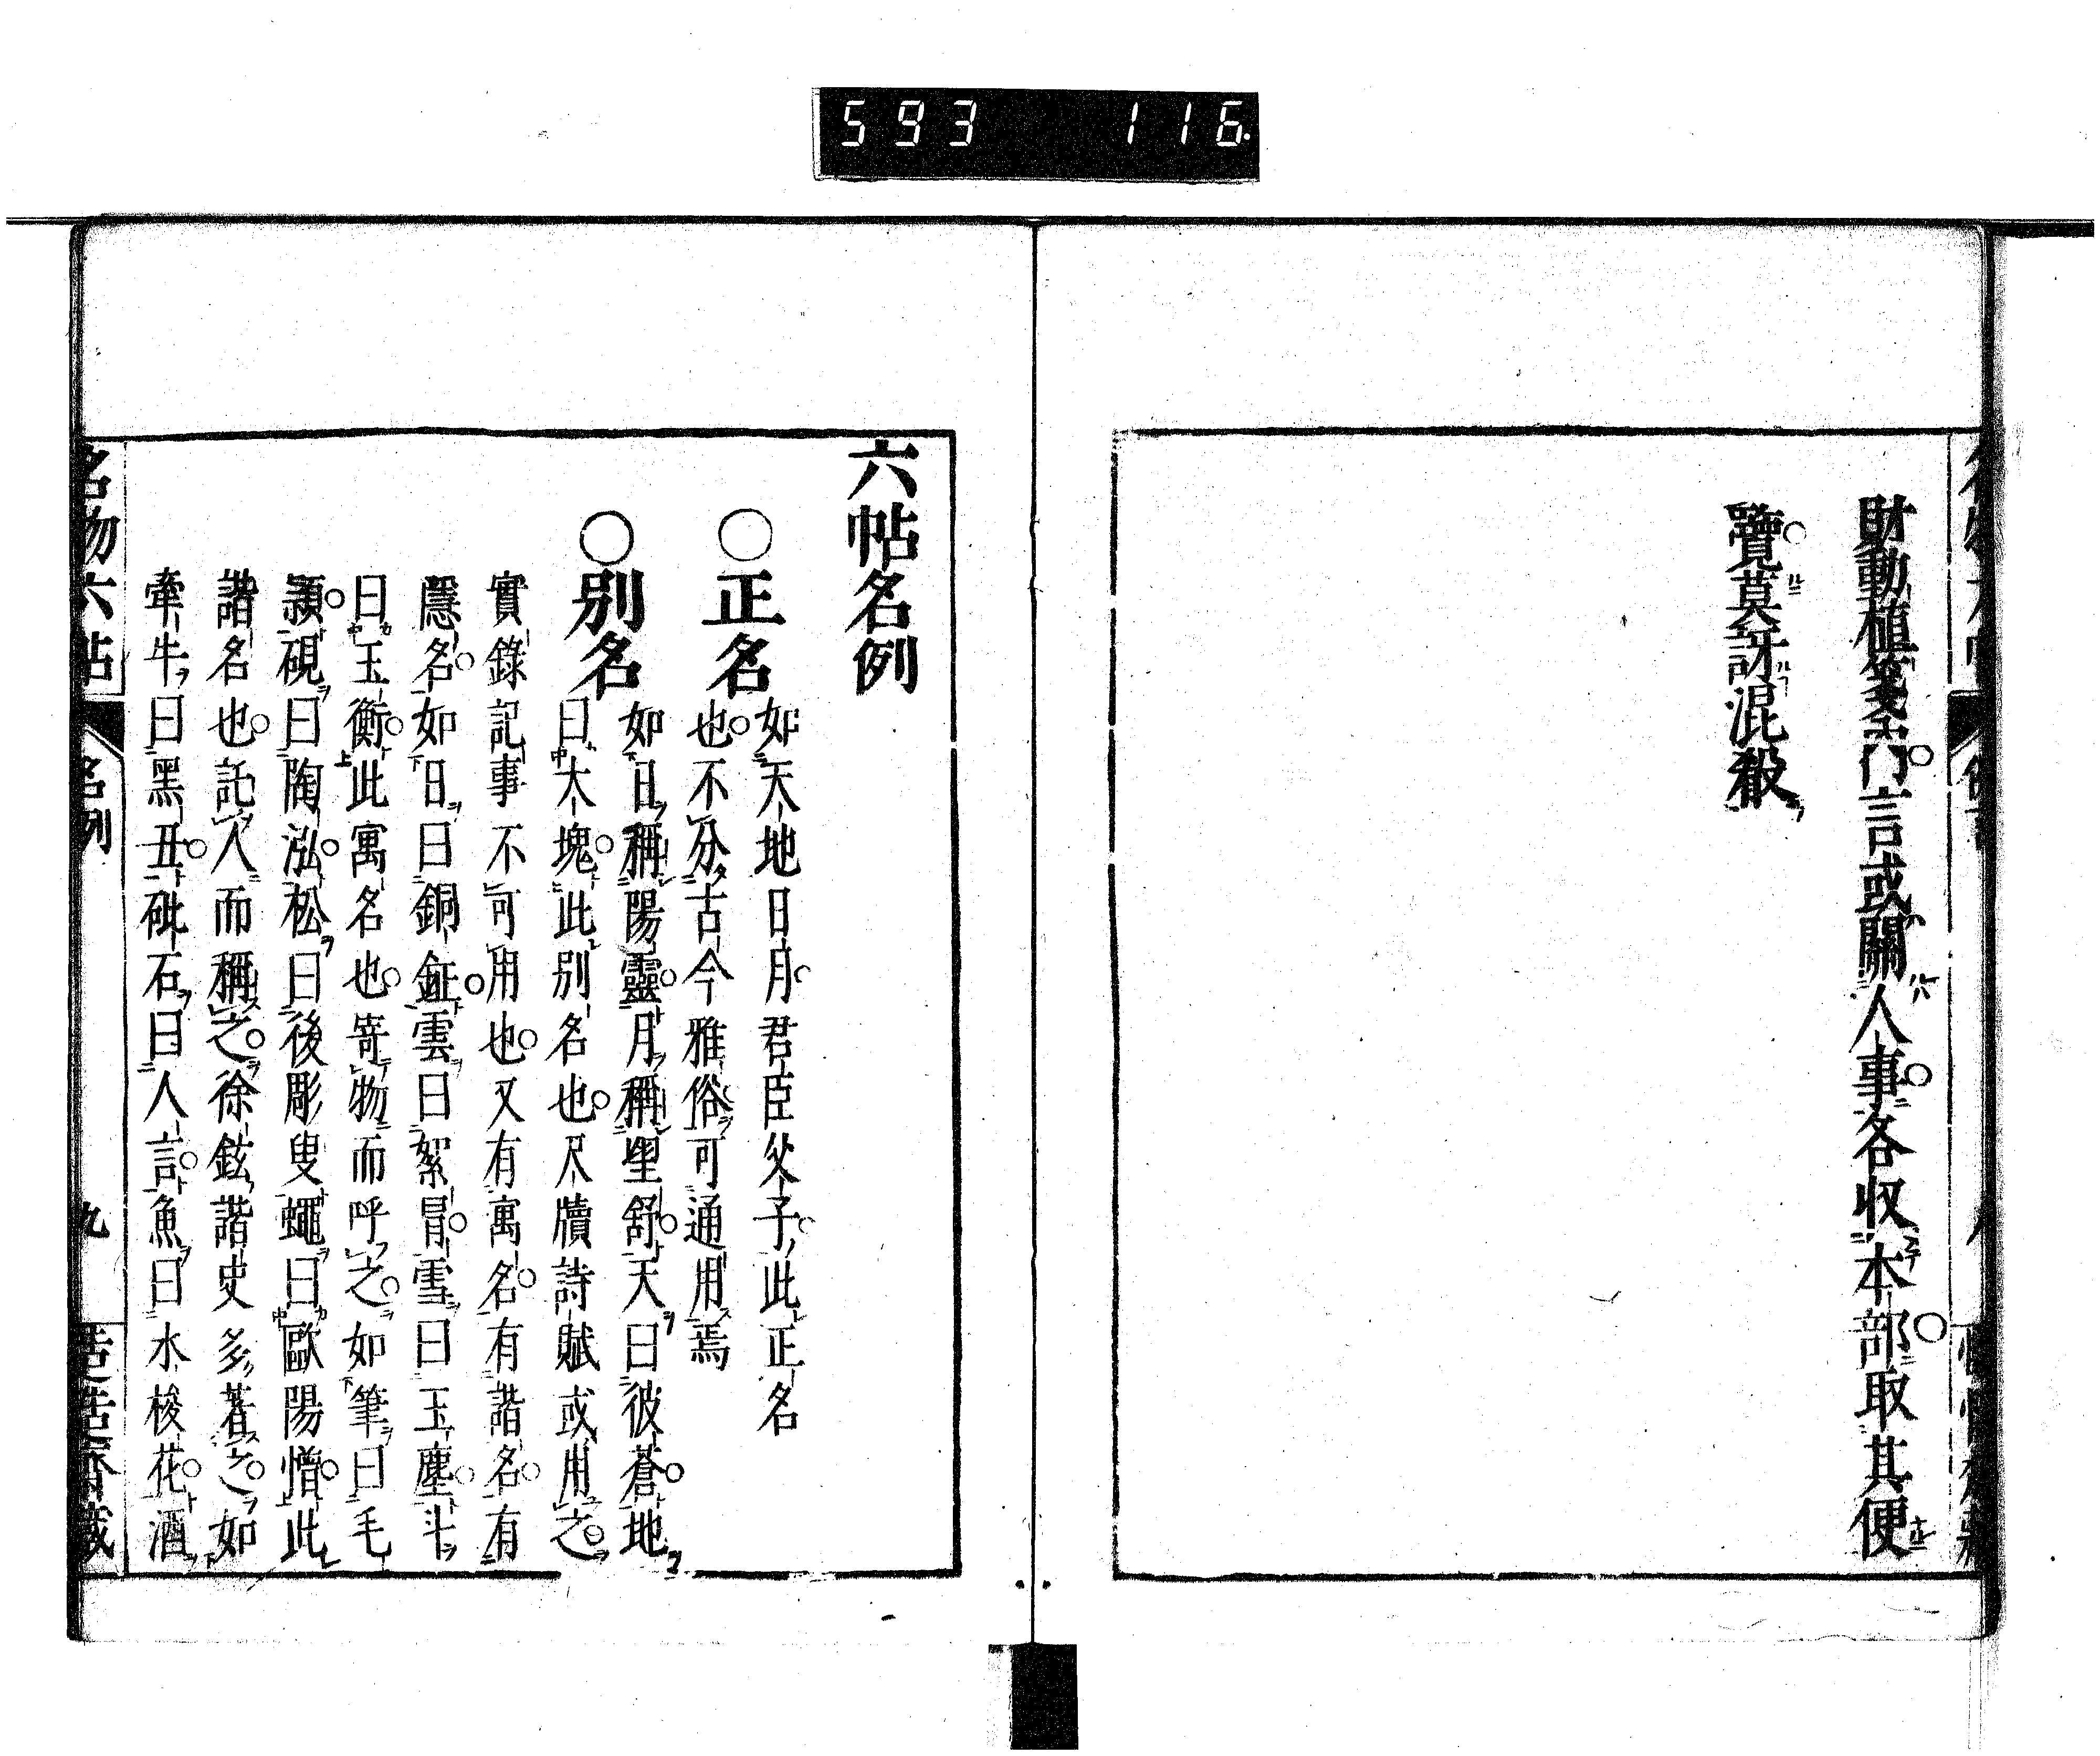 593 116
財動植箋全門言或關人事各収本部取其便
覽莫訝混殽
六帖名例
○正名
如天地日月君臣父子此正名
也不分古今雅俗可通用焉
○別名
如日稱陽靈月稱望舒天曰彼蒼地
曰大塊此別名也尺牘詩賦或用之
實錄記事不可用也又有寓名有諧名有
隱名如日曰銅鉦雲曰絮冐雪曰玉塵斗
曰玉衡此寓名也寄物而呼之如筆曰毛
頴硯曰陶泓松曰後彫叟蠅曰歐陽憎此
諧名也託人而稱之徐鉉諧史多著之如
牽牛曰黑丑砒石曰人言魚曰水梭花酒
名物六帖 名例 九